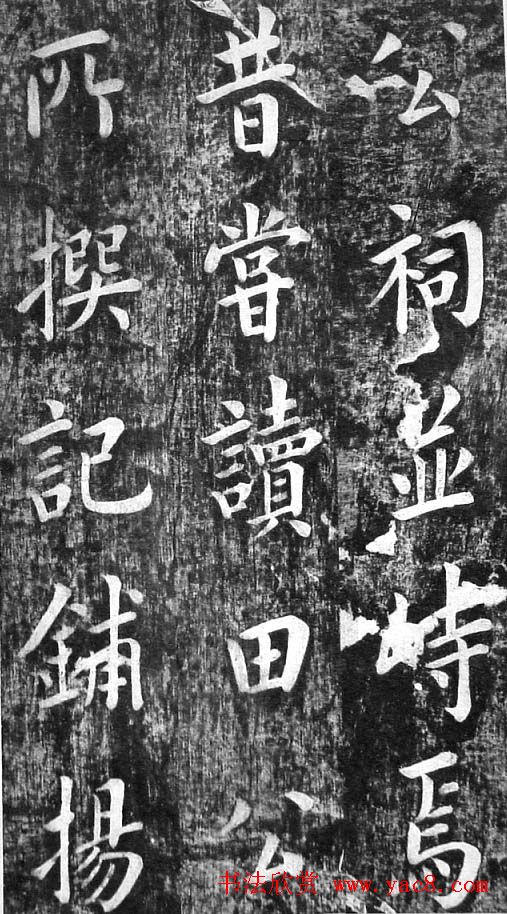 公祠並峙焉
昔嘗讀田公
所撰記鋪揚
书法欣赏 www.yac8.com